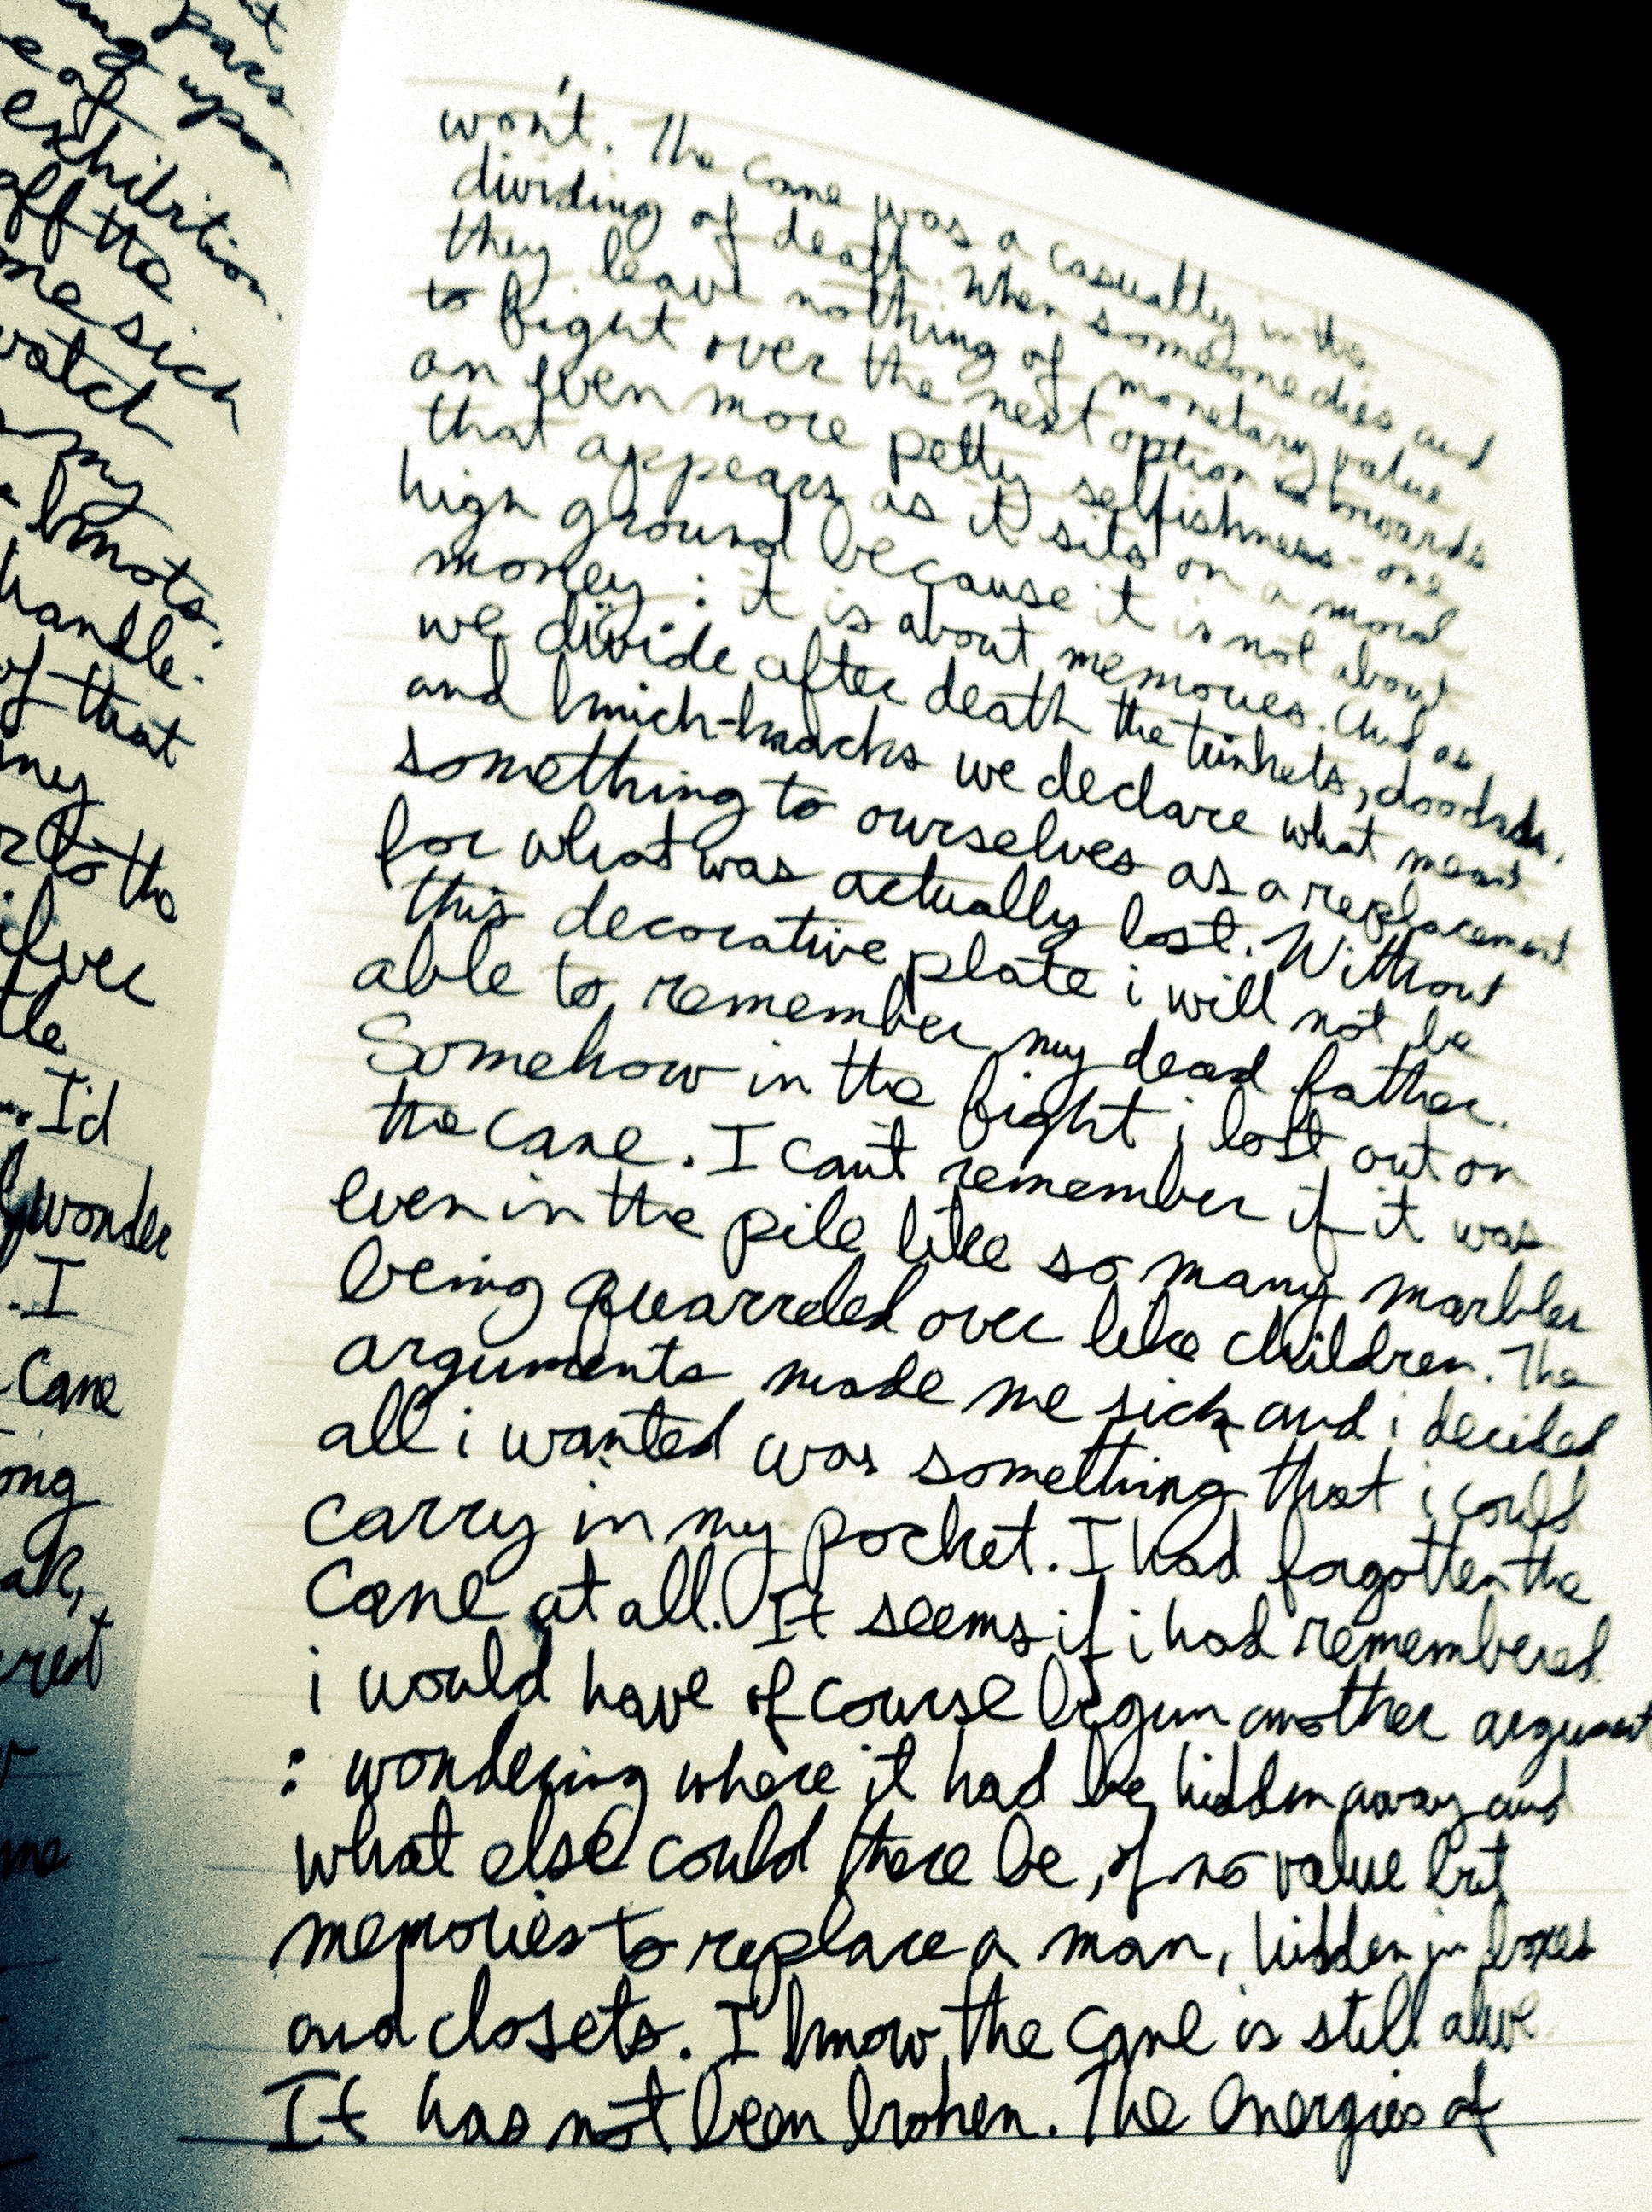 pars
ng upon
exhibition
off the
me sick
watch
my
knots.
handle.
of that
my
to the
silver
tle
I'd
wonder
. I
Cane
ong
ak,
me
won't. The cane was a casualty in the
dividing of death. When someone dies and
they leave nothing of monetary value
to fight over the next option is towards
an even more petty selfishness - one
that appears as it sits on a moral
high ground because it is not about
money : it is about memories. And as
we divide after death the trinkets, doodads,
and knick-knacks we declare what meant
something to ourselves as a replacement
for what was actually lost. Without
this decorative plate i will not be
able to remember my dead father.
Somehow in the fight i lost out on
the cane. I can't remember if it was
even in the pile like so many marbles
being quarreled over like children. The
arguments made me sick and i decided
all i wanted was something that i could
carry in my pocket. I had forgotten the
cane at all. It seems if i had remembered
i would have of course begun another argument
: wondering where it had be hidden away and
what else could there be, of no value but
memories to replace a man, hidden in boxes
and closets. I know the cane is still alive
It has not been broken. The energies of